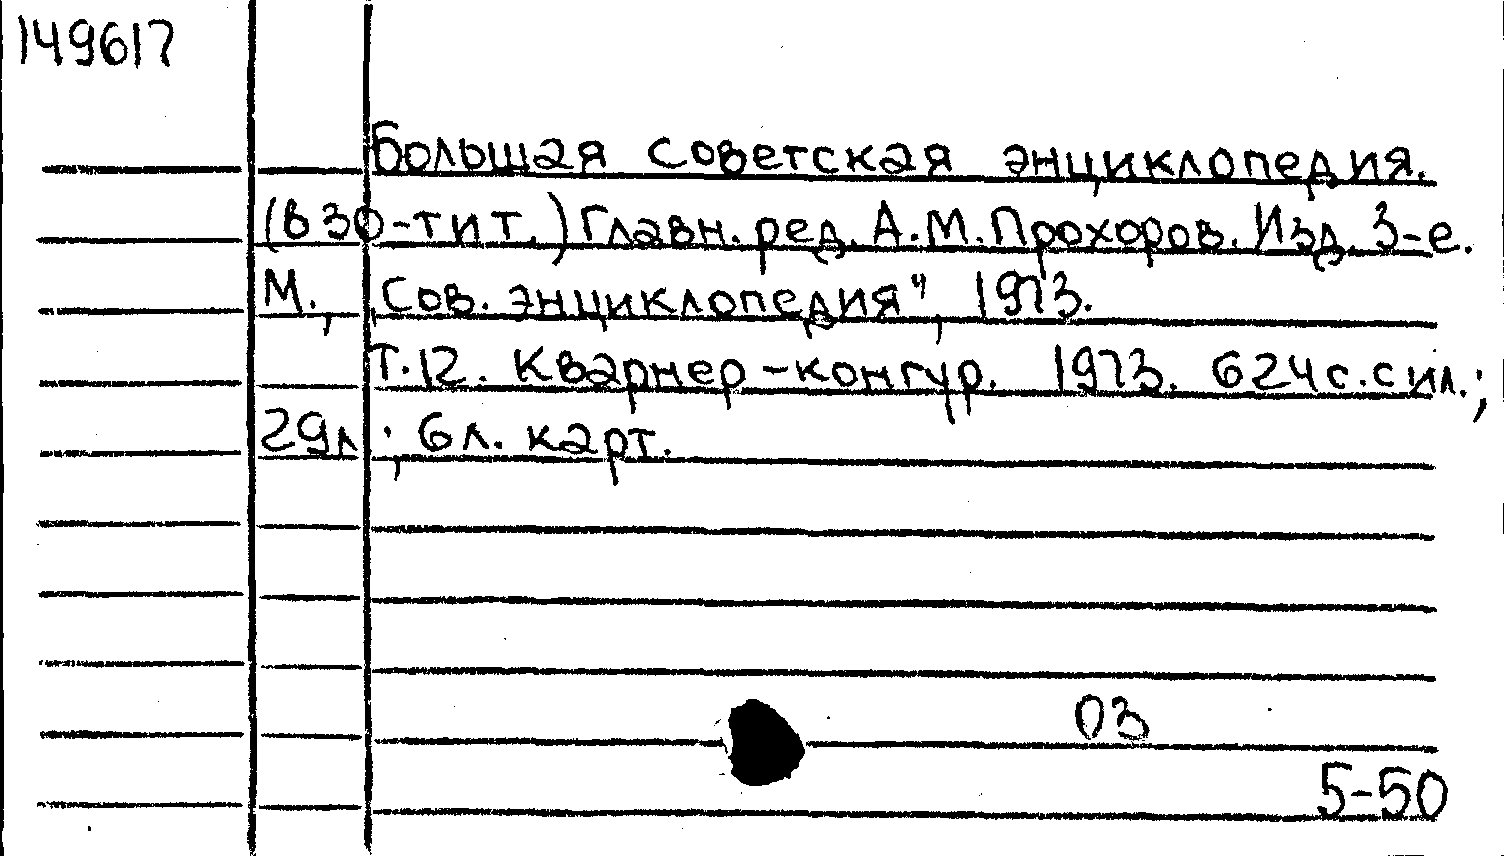 149617
Большая советская энциклопедия.
(в 30-ти т.) Главн. ред. А.М.Прохоров. Изд. 3-е.
М., „Сов. энциклопедия", 1973.
Т.12. Кварнер-конгур. 1973. 624с.с ил.;
29л.; 6л. карт.
03
5-50